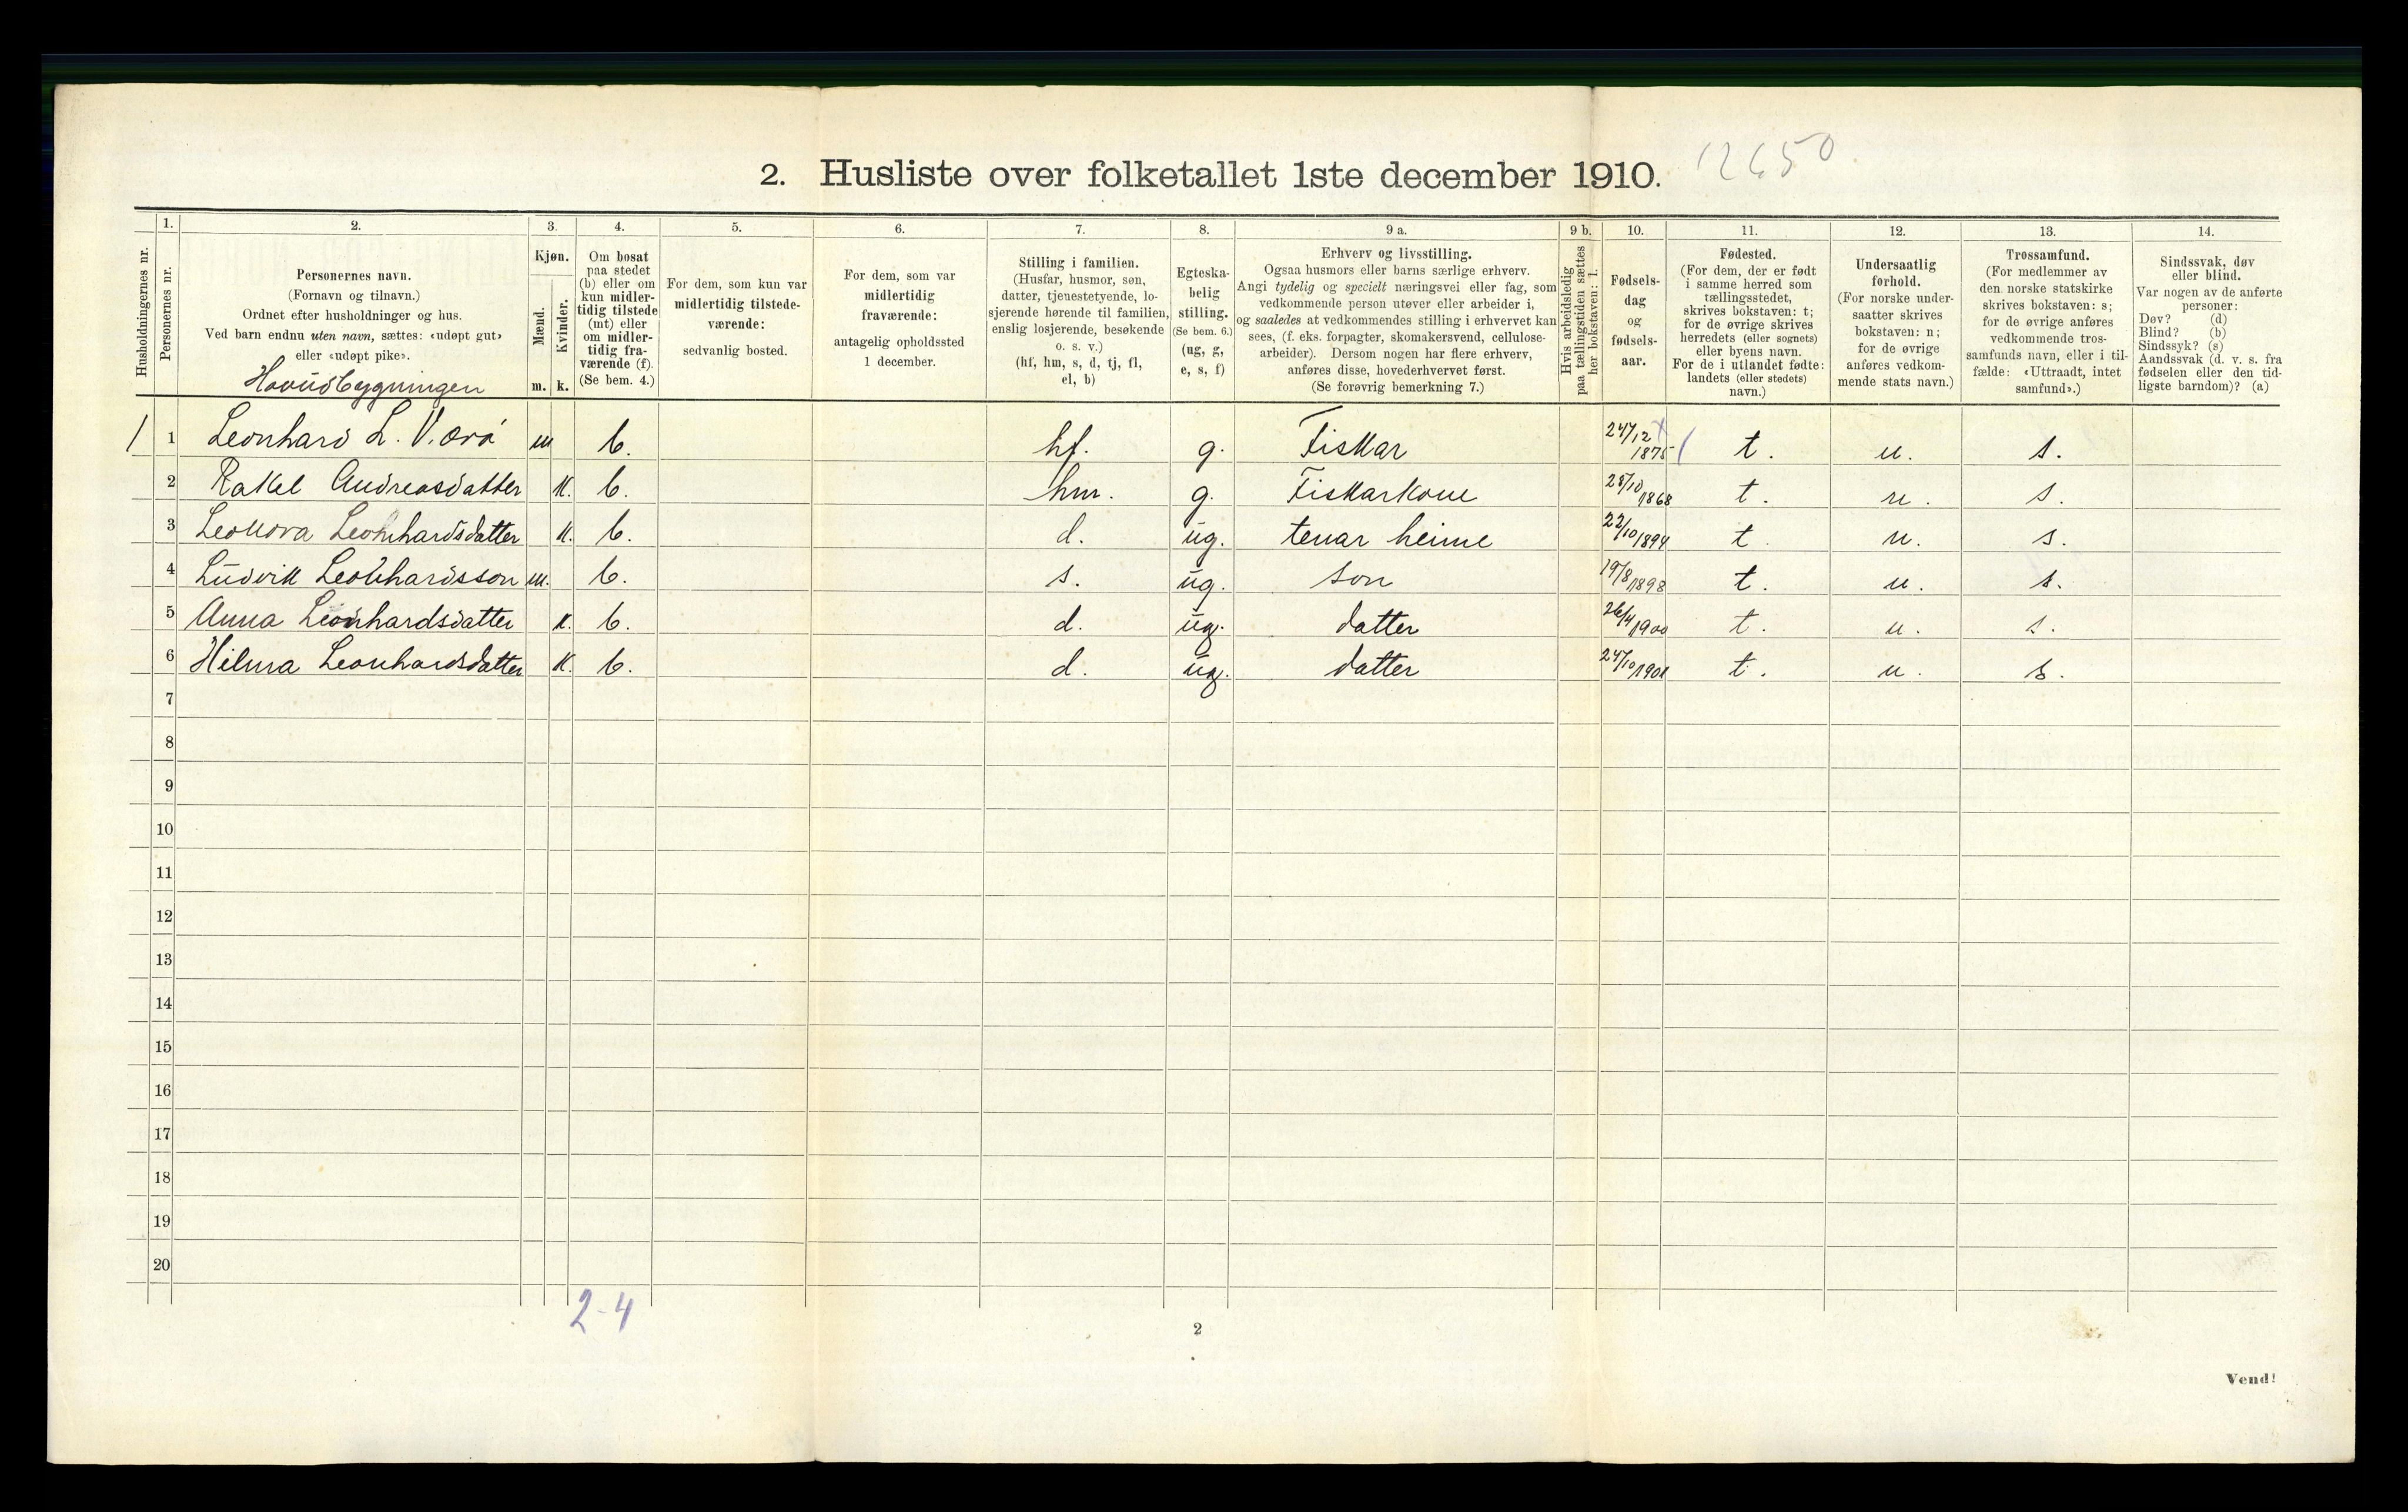 2. Husliste over folketallet 1ste december 1910. 12650
Husholdningernes nr.
1. Personernes nr.
2. Personernes navn.
(Fornavn og tilnavn.)
Ordnet efter husholdninger og hus.
Ved barn endnu uten navn, sættes: «udøpt gut»
eller «udøpt pike».
Hovudbygningen
3. Kjøn.
Mænd. m.
Kvinder. k.
4. Om bosat
paa stedet
(b) eller om
kun midler-
tidig tilstede
(mt) eller
om midler-
tidig fra-
værende (f).
(Se bem. 4.)
5. For dem, som kun var
midlertidig tilstede-
værende:
sedvanlig bosted.
6. For dem, som var
midlertidig
fraværende:
antagelig opholdssted
1 december.
7. Stilling i familien.
(Husfar, husmor, søn,
datter, tjenestetyende, lo-
sjerende hørende til familien,
enslig losjerende, besøkende
o. s. v.)
(hf, hm, s, d, tj, fl,
el, b)
8. Egteska-
belig
stilling.
(Se bem. 6.)
(ug, g,
e, s, f)
9 a. Erhverv og livsstilling.
Ogsaa husmors eller barns særlige erhverv.
Angi tydelig og specielt næringsvei eller fag, som
vedkommende person utøver eller arbeider i,
og saaledes at vedkommendes stilling i erhvervet kan
sees, (f. eks. forpagter, skomakersvend, cellulose-
arbeider). Dersom nogen har flere erhverv,
anføres disse, hovederhvervet først.
(Se forøvrig bemerkning 7.)
9 b. Hvis arbeidsledig
paa tællingstiden sættes
her bokstaven: l.
10. Fødsels-
dag
og
fødsels-
aar.
11. Fødested.
(For dem, der er født
i samme herred som
tællingsstedet,
skrives bokstaven: t;
for de øvrige skrives
herredets (eller sognets)
eller byens navn.
For de i utlandet fødte:
landets (eller stedets)
navn.)
12. Undersaatlig
forhold.
(For norske under-
saatter skrives
bokstaven: n;
for de øvrige
anføres vedkom-
mende stats navn.)
13. Trossamfund.
(For medlemmer av
den norske statskirke
skrives bokstaven: s;
for de øvrige anføres
vedkommende tros-
samfunds navn, eller i til-
fælde: «Uttraadt, intet
samfund».)
14. Sindssvak, døv
eller blind.
Var nogen av de anførte
personer:
Døv? (d)
Blind? (b)
Sindssyk? (s)
Aandssvak (d. v. s. fra
fødselen eller den tid-
ligste barndom)? (a)
1 1 Leonhard L. V. m b. hf. g. Fiskar 24/12 1875 t. n. s.
2 Rakel Andreasdatter k. b. hm. g. Fiskarkone 28/10 1868 t. n. s.
3 Leonora Leonhardsdatter k. b. d. ug. tenar heime 22/10 1894 t. n. s.
4 Ludvik Leonhardsson m. b. s. ug. son 19/8 1898 t. n. s.
5 Anna Leonhardsdatter k. b. d. ug. datter 26/4 1900 t. n. s.
6 Hilma Leonhardsdatter k. b. d. ug. datter 24/10 1901 t. n. s.
7
8
9
10
11
12
13
14
15
16
17
18
19
20
2-4
2
Vend!